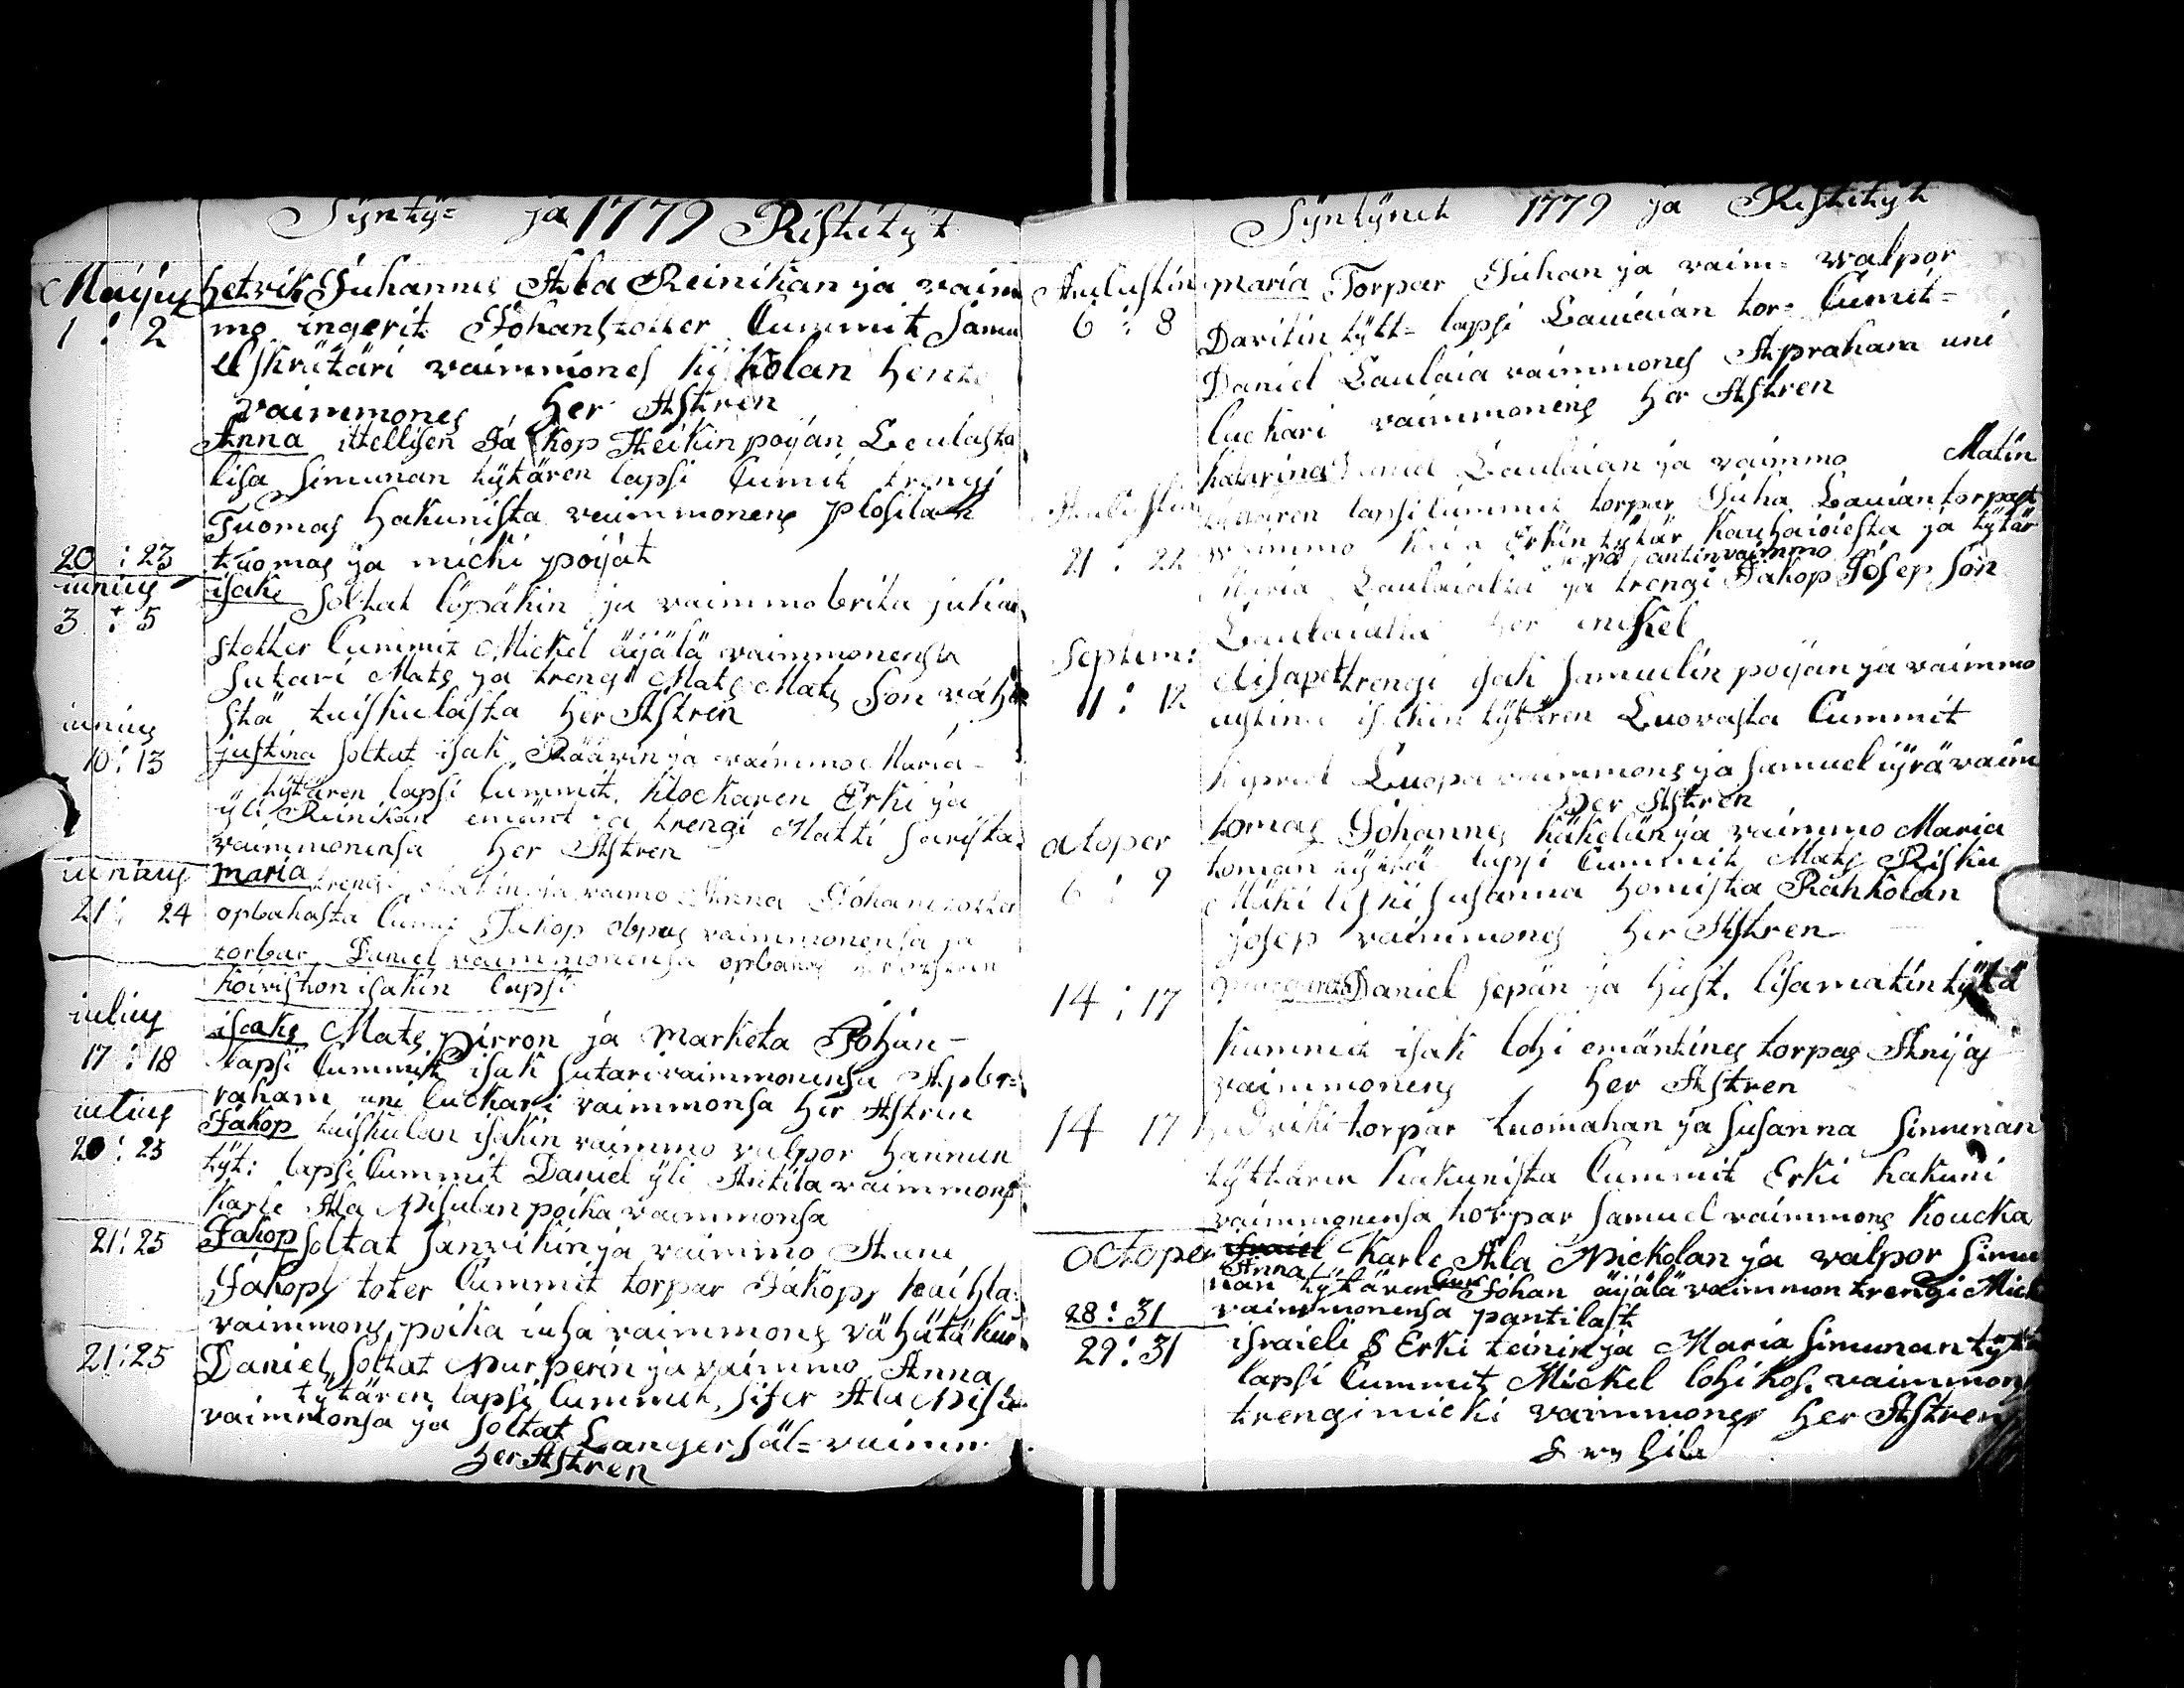 Syntÿ= ja 1779 Ristitÿt
Maijus hetvik Juhannus Ala Reinikan ja vaim
1 : 2 mo ingerit Johanstotter Cummit Samu
el skrätäri vaimmones kÿ kölan hentr
vaimmones her Astren
Anna ittellisen Ja kop Heikin poijan Leulasta
lisa Simunan tÿtären lapsi Cumit trengi
Tuomas Hakunista vaimmonens plosilan
20 : 23 tuomas ja micki poijat
iunius isaki soltat löpäkin ja vaimmo brita juhan
3 : 5 stotter Cummit Mickel äijälä vaimmonensa
Sutari Mats ja trengi Mats Mats Son vähä
iunius stä tuiskulasta her Astren
10 : 13 justina soltat isak Räävin ja vaimmo Maria
tÿtären lapsi Cummit klockaren Erki ja
ÿli Reinikan emänt ja trengi Matti Sarista
vaimmonensa her Astren
iunius maria trengi Matin ja vaimo Anna Johanstotter
21 : 24 opbahasta Cumi Jakop obpas vaimmonensa ja
torbar Daniel vaimmonensa opbahas
koiviston isakin lapsi
iulius isaks Mats pirron ja marketa Johan-
17 : 18 lapsi Cummit isak sutari vaimmonensa Apbr=
raham uni luckari vaimmonsa her Astren
iulius Jakop tuiskulan isakin vaimmo valpor hannun
20 : 25 tÿt: lapsi Cummit Daniel ÿli Antila vaimmons
karle Ala Nisulan poika vaimmonsa
21 : 25 Jakop soltat Sanvikin ja vaimmo Anna
Jakops toter Cummit torpar Jakops
vaimmons poika iuha vaimmons vähätäkin
21 : 25 Daniel soltat Nurperin ja vaimmo Anna
tÿtären lapsi Cummit, Sifer Ala Nisu
vaimmonsa ja soltat Langersäl= vaimm
her Astren
Sÿntÿnet 1779 ja Ristitÿt
Aulustin maria Torpar Juhan ja vaim= valpor
6 : 8 Davitin tÿtt= lapsi Lauaian tor= Cumit=
Daniel Laulaia vaimmones Apraham uni
luckari vaimmonens her Astren
katarina Daniel Laulaian ja vaimmo Matin
Aulustin tÿttären lapsi Cummit torpar Juha Lauian torpast
21 : 22 vaimmo Erkin tÿtär kauhaioiesta ja tÿtär
antin vaimmo
Maria Laulaialta ja trengi Jakop Josep Son
Laulaialta her
Septem: Elisapet trengi isak Samuelin poijan ja vaimmo
11 : 12 iustina isakin tÿtären Luovasta Cummit
kaprel Luopa vaimmons ja Samuel iÿrä vaim
her Astren
octoper tomas Johannes käkelän ja vaimmo Maria
6 : 9 toman tÿttä lapsi Cummit Mats Risku
Mäki leski Susanna homista Rahkolan
josep vaimmons her Astren
14 : 17 Daniel sepän ja hust. lisa matin tÿtä
kummit isak lohi emäntines torpas Antijas
vaimmonens her Astren
14 17 hedviki torpar tuomahan ja Susanna Simunan
tÿttären hakunista Cummit Erki hakuni
vaimmonensa torpar Samuel vaimmons koucka
octoper Israiel karle Ala Nickolan ja valpor Simu
Anna
nan tÿtären Cum Johan äijälä vaimmon trengi Mick
28 : 31 vaimmonensa pantilast
29 : 31 israieli S Erki teinin ja Maria Simunan tÿt
lapsi Cummit Mickel lohi kos. vaimmon
trengi micki vaimmons her Astren